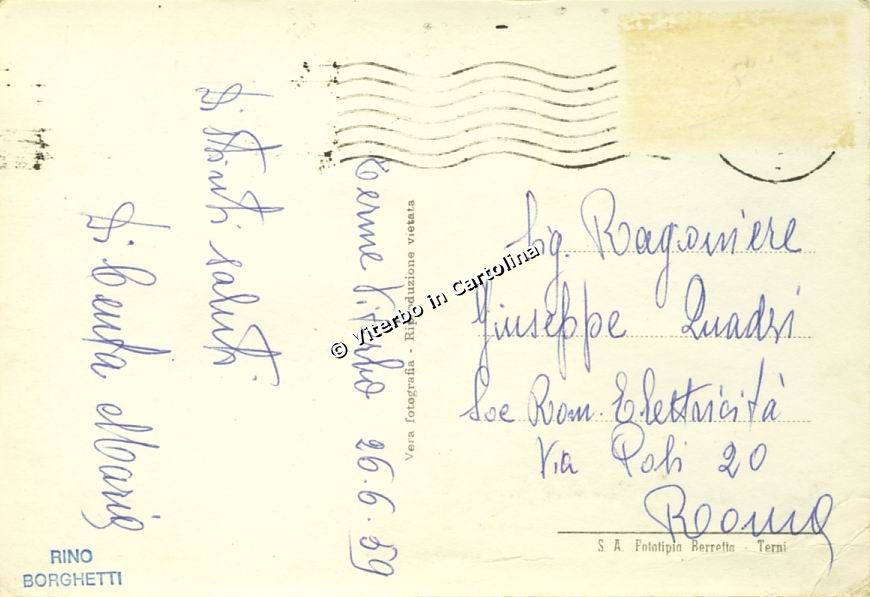 Terme Viterbo 26.6.59
Distinti saluti
Di Centa Mario
Sig. Ragioniere
Giuseppe Quadri
Soc Rom. Elettricità
Via Poli 20
Roma
Vera fotografia - Riproduzione vietata
© Viterbo in Cartolina
S. A. Fototipia Berretta - Terni
RINO
BORGHETTI